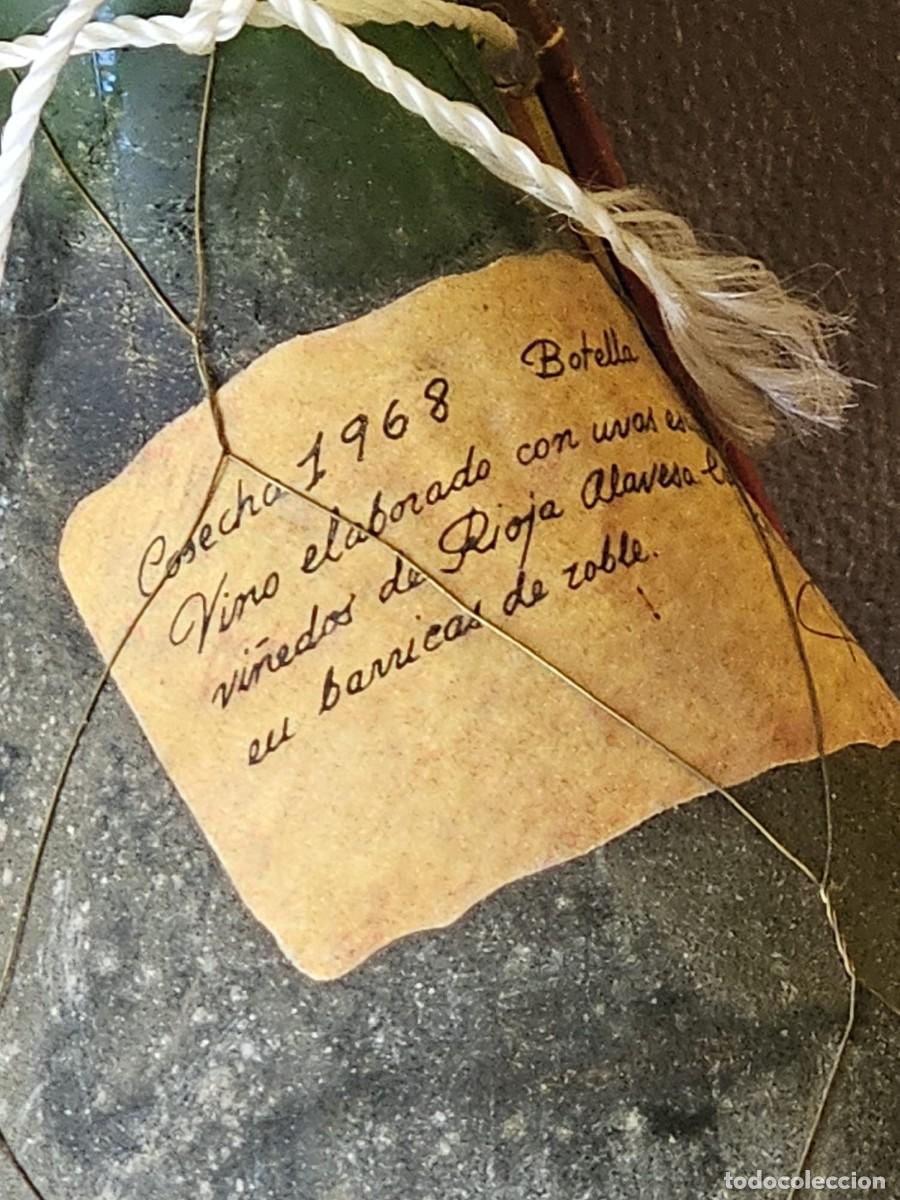 Cosecha 1968 Botella
Vino elaborado con uvas
viñedos de Rioja Alavesa
en barricas de roble.
todocoleccion